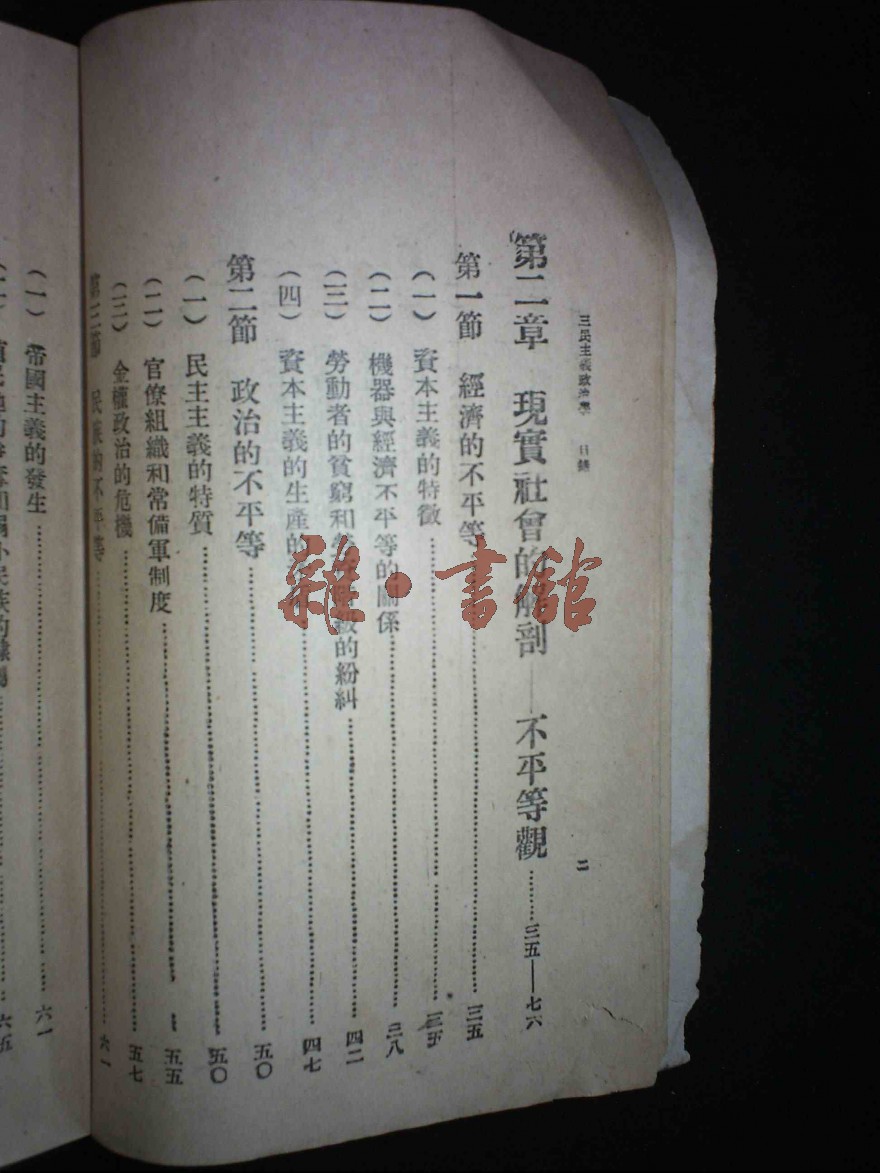 三民主義政治學 目錄 二
第二章 現實社會的解剖——不平等觀………三五——七六
第一節 經濟的不平等………三五
(一) 資本主義的特徵………三五
(二) 機器與經濟不平等的關係………三八
(三) 勞動者的貧窮和勞 級的紛糾………四二
(四) 資本主義的生產的………四七
第二節 政治的不平等………五〇
(一) 民主主義的特質………五〇
(二) 官僚組織和常備軍制度………五五
(三) 金權政治的危機………五七
第三節 民族的不平等………六一
(一) 帝國主義的發生………六一
民族的………六五
雜·書館